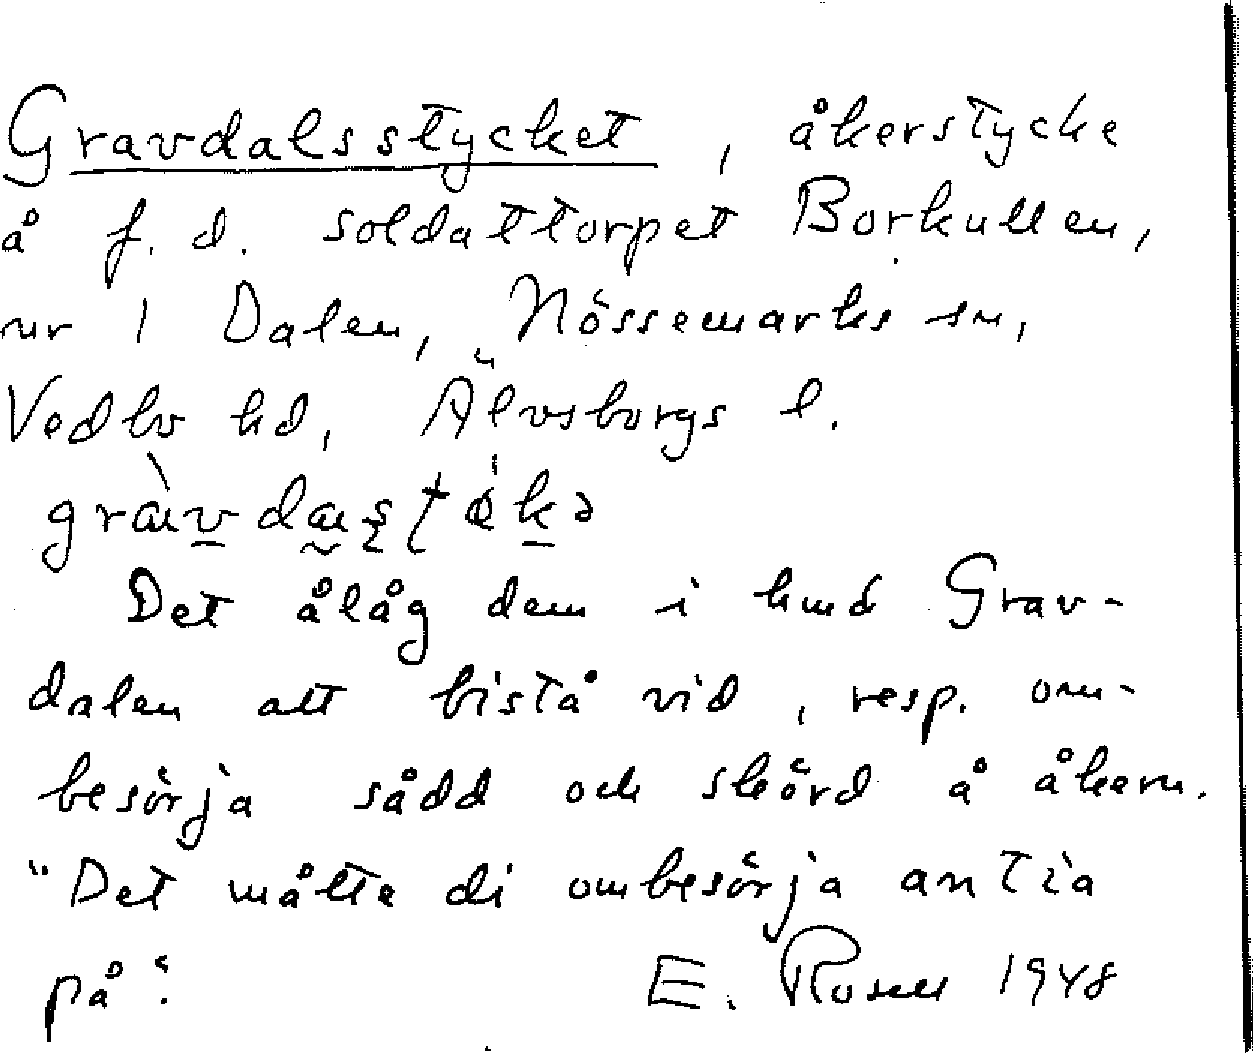 Gravdalsstycket, åkerstycke
å f. d. soldattorpet Borkullen,
nr 1 Dalen, Nössemarks sn,
Vedbo hd, Älvsborgs l.
Det ålåg dem i hmd Grav-
dalen att bistå vid, resp. om-
besörja sådd och skörd å åkern.
"Det måtte di ombesörja antia
på".
E. Rosen 1948